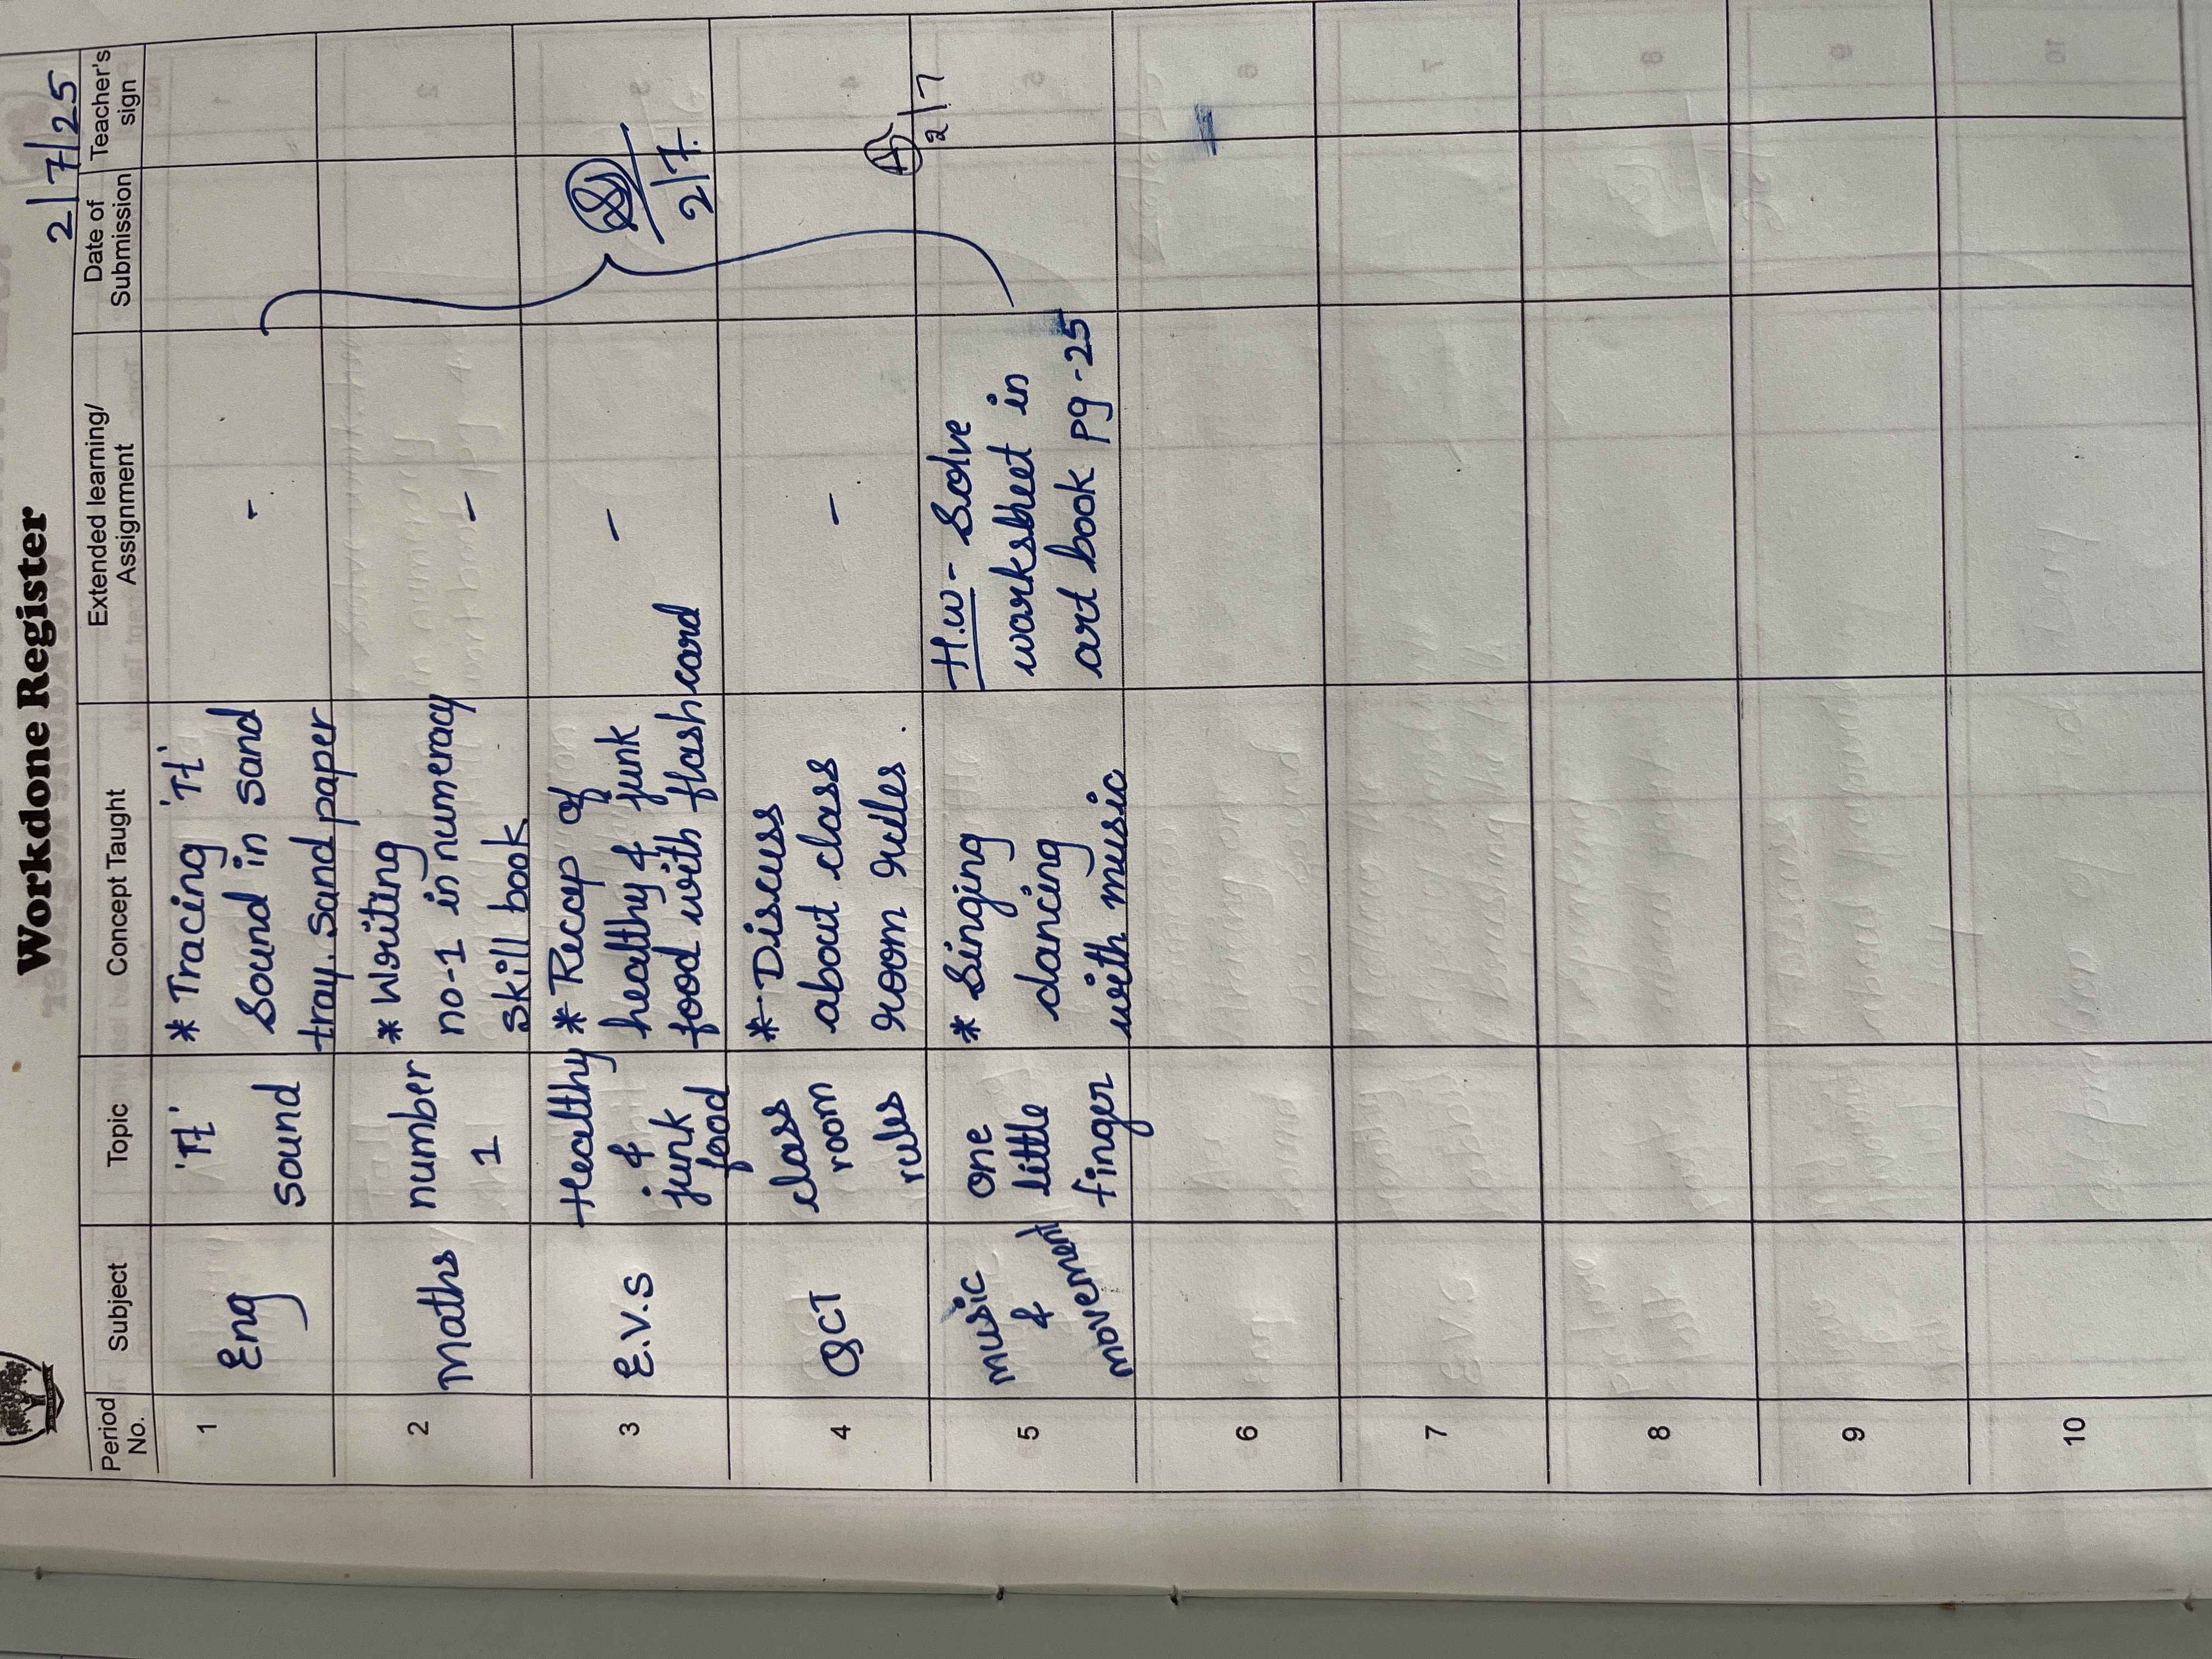 Workdone Register
2/7/25
Period No. Subject Topic Concept Taught Extended learning/ Assignment Date of Submission Teacher's sign
1 Eng
sound
* Tracing
sound in sand
tray. sand paper
-
2 Maths
number
1
* Writing
no-1 in numeracy
skill book
-
3 E.V.S
Healthy
&
junk
food
* Recap of
healthy & junk
food with flash card
-
2/7.
4
class
room
rules
* Discuss
about class
room rules.
-
2/7
5 music
&
movement
one
little
finger
* Singing
dancing
with music
H.W - Solve
worksheet in
art book pg -25
6
7
8
9
10